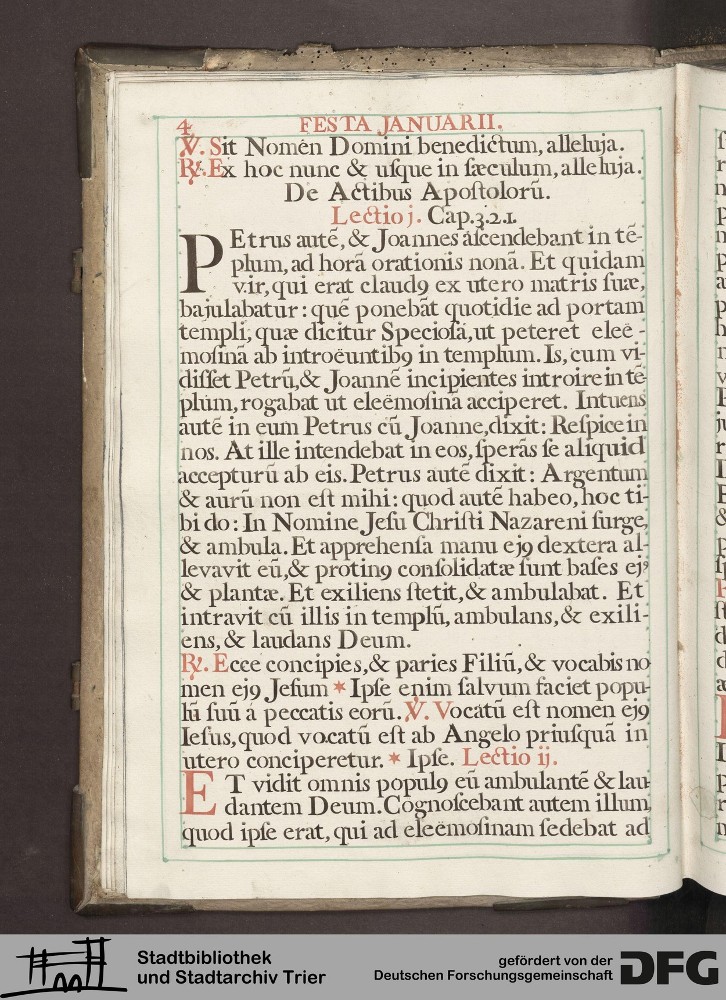 4 FESTA JANUARII.
℣. Sit Nomen Domini benedictum, alleluja.
℟. Ex hoc nunc & uſque in ſæculum, alleluja.
De Actibus Apoſtolorū.
Lectio j. Cap. 3. 2. 1.
PEtrus autē, & Joannes aſcendebant in tē-
plum, ad horā orationis nonā. Et quidam
vir, qui erat claudꝰ ex utero matris ſuæ,
bajulabatur: quē ponebāt quotidie ad portam
templi, quæ dicitur Specioſa, ut peteret eleë-
moſinā ab introëuntibꝰ in templum. Is, cum vi-
diſſet Petrū, & Joannē incipientes introire in tē
plum, rogabat ut eleëmoſina acciperet. Intuens
autē in eum Petrus cū Joanne, dixit: Reſpice in
nos. At ille intendebat in eos, ſperās ſe aliquid
accepturū ab eis. Petrus autē dixit: Argentum
& aurū non eſt mihi: quod autē habeo, hoc ti-
bi do: In Nomine Jeſu Chriſti Nazareni ſurge,
& ambula. Et apprehenſa manu ejꝰ dextera al-
levavit eū, & protinꝰ conſolidatæ ſunt baſes ejꝰ
& plantæ. Et exiliens ſtetit, & ambulabat. Et
intravit cū illis in templū, ambulans, & exili-
ens, & laudans Deum.
℟. Ecce concipies, & paries Filiū, & vocabis no
men ejꝰ Jeſum * Ipſe enim ſalvum faciet popu-
lū ſuū á peccatis eorū. ℣. Vocatū eſt nomen ejꝰ
Ieſus, quod vocatū eſt ab Angelo priuſquā in
utero conciperetur. * Ipſe. Lectio ij.
ET vidit omnis populꝰ eū ambulantē & lau-
dantem Deum. Cognoſcebant autem illum,
quod ipſe erat, qui ad eleëmoſinam ſedebat ad
Stadtbibliothek
und Stadtarchiv Trier
gefördert von der
Deutschen Forschungsgemeinschaft
DFG